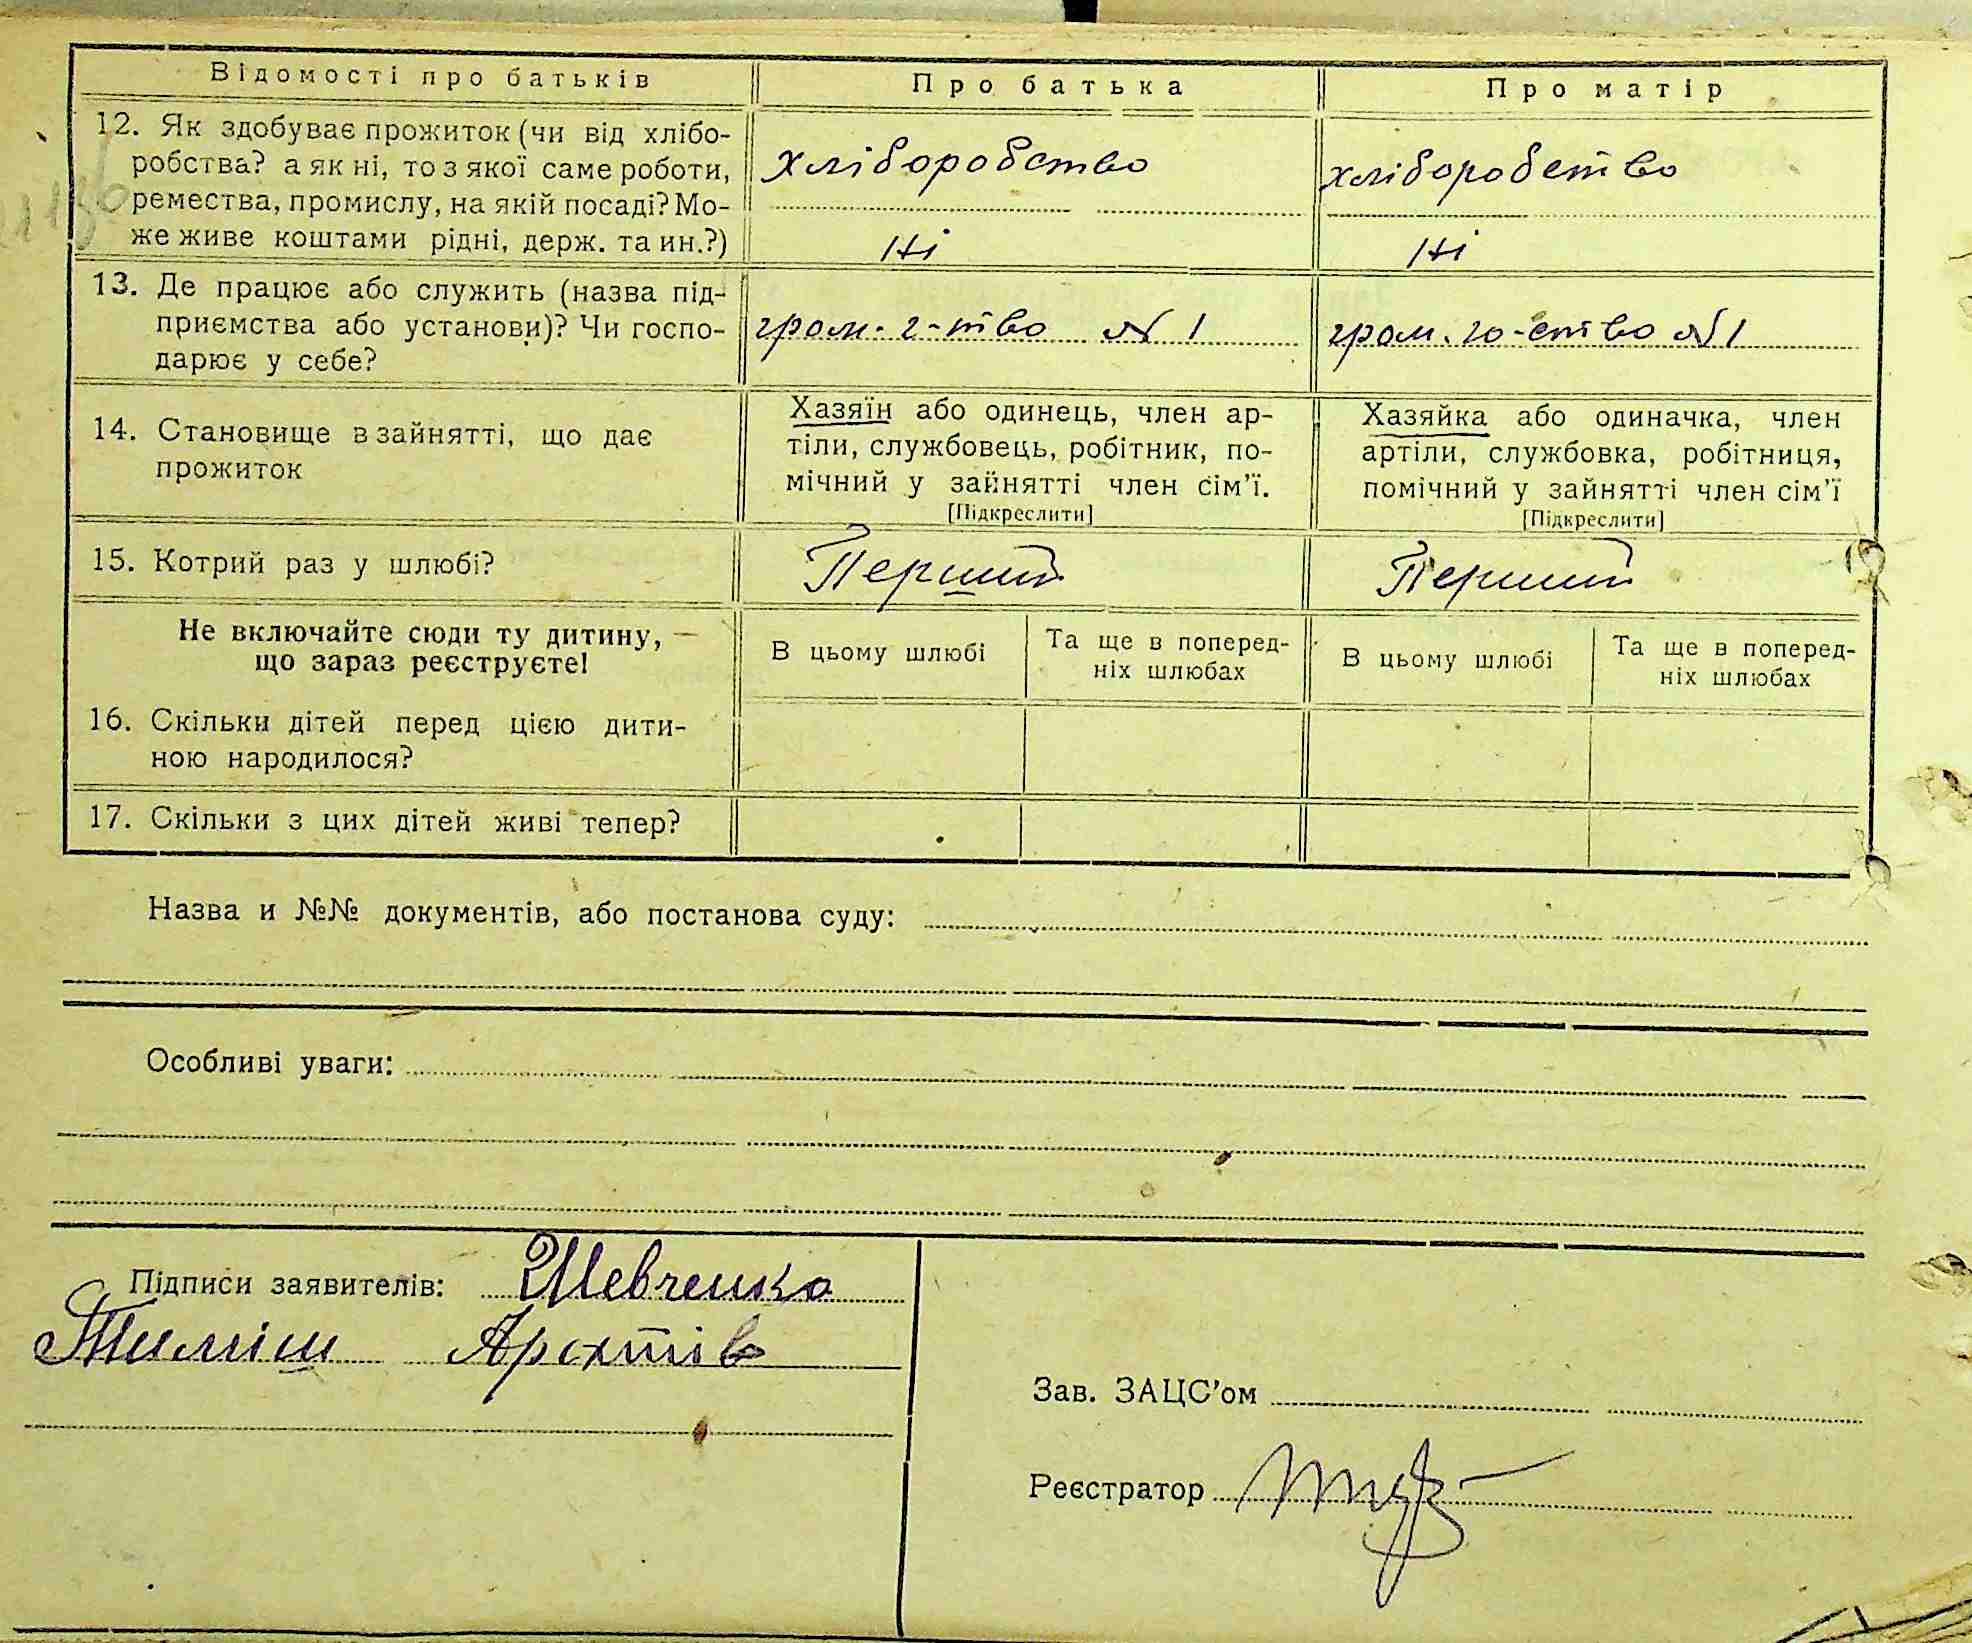 Відомості про батьків
Про батька
Про матір
12. Як здобуває прожиток (чи від хлібо-
робства? а як ні, то з якої саме роботи,
ремества, промислу, на якій посаді? Мо-
же живе коштами рідні, держ. та ин.?)
хліборобство
Ні
хліборобство
Ні
13. Де працює або служить (назва під-
приємства або установи)? Чи госпо-
дарює у себе?
гром. г-тво № 1
гром. го-ство № 1
14. Становище в зайнятті, що дає
прожиток
Хазяїн або одинець, член ар-
тіли, службовець, робітник, по-
мічний у зайнятті член сім'ї.
[Підкреслити]
Хазяйка або одиначка, член
артіли, службовка, робітниця,
помічний у зайнятті член сім'ї
[Підкреслити]
15. Котрий раз у шлюбі?
Перший
Перший
Не включайте сюди ту дитину,
що зараз реєструєте!
В цьому шлюбі
Та ще в поперед-
ніх шлюбах
В цьому шлюбі
Та ще в поперед-
ніх шлюбах
16. Скільки дітей перед цією дити-
ною народилося?
17. Скільки з цих дітей живі тепер?
Назва и №№ документів, або постанова суду:
Особливі уваги:
Підписи заявителів: Шевченко
Тиміш
Зав. ЗАЦС'ом
Реєстратор